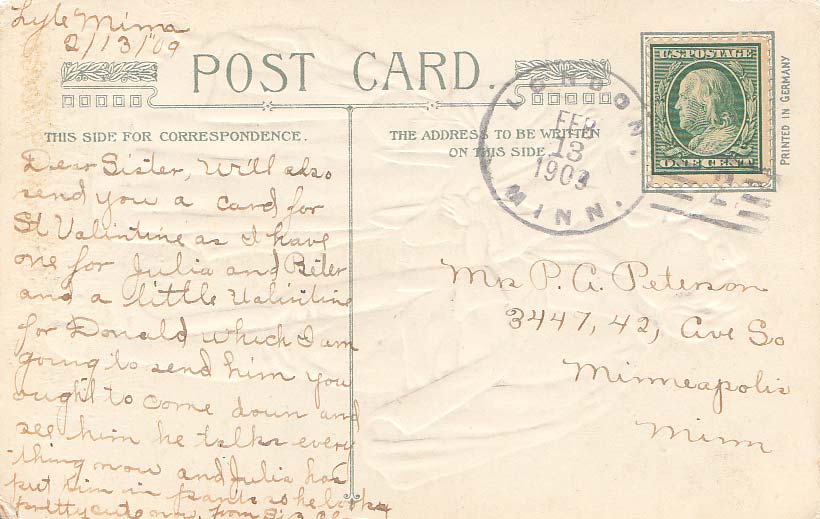 Lyle Minn
2/13/09
POST CARD.
THIS SIDE FOR CORRESPONDENCE.
THE ADDRESS TO BE WRITTEN
ON THIS SIDE
U.S. POSTAGE
ONE CENT
PRINTED IN GERMANY
LONDON,
FEB
13
1909
MINN.
Dear Sister, Will also
send you a card for
St Valintine as I have
one for Julia and Peter
and a little Valintine
for Donald which I am
going to send him you
ought to come down and
see him he talks every
thing now and Julia has
put him in pants so he looks
pretty cute now. from
Mrs P. A. Peterson
3447, 42, Ave So
Minneapolis
Minn